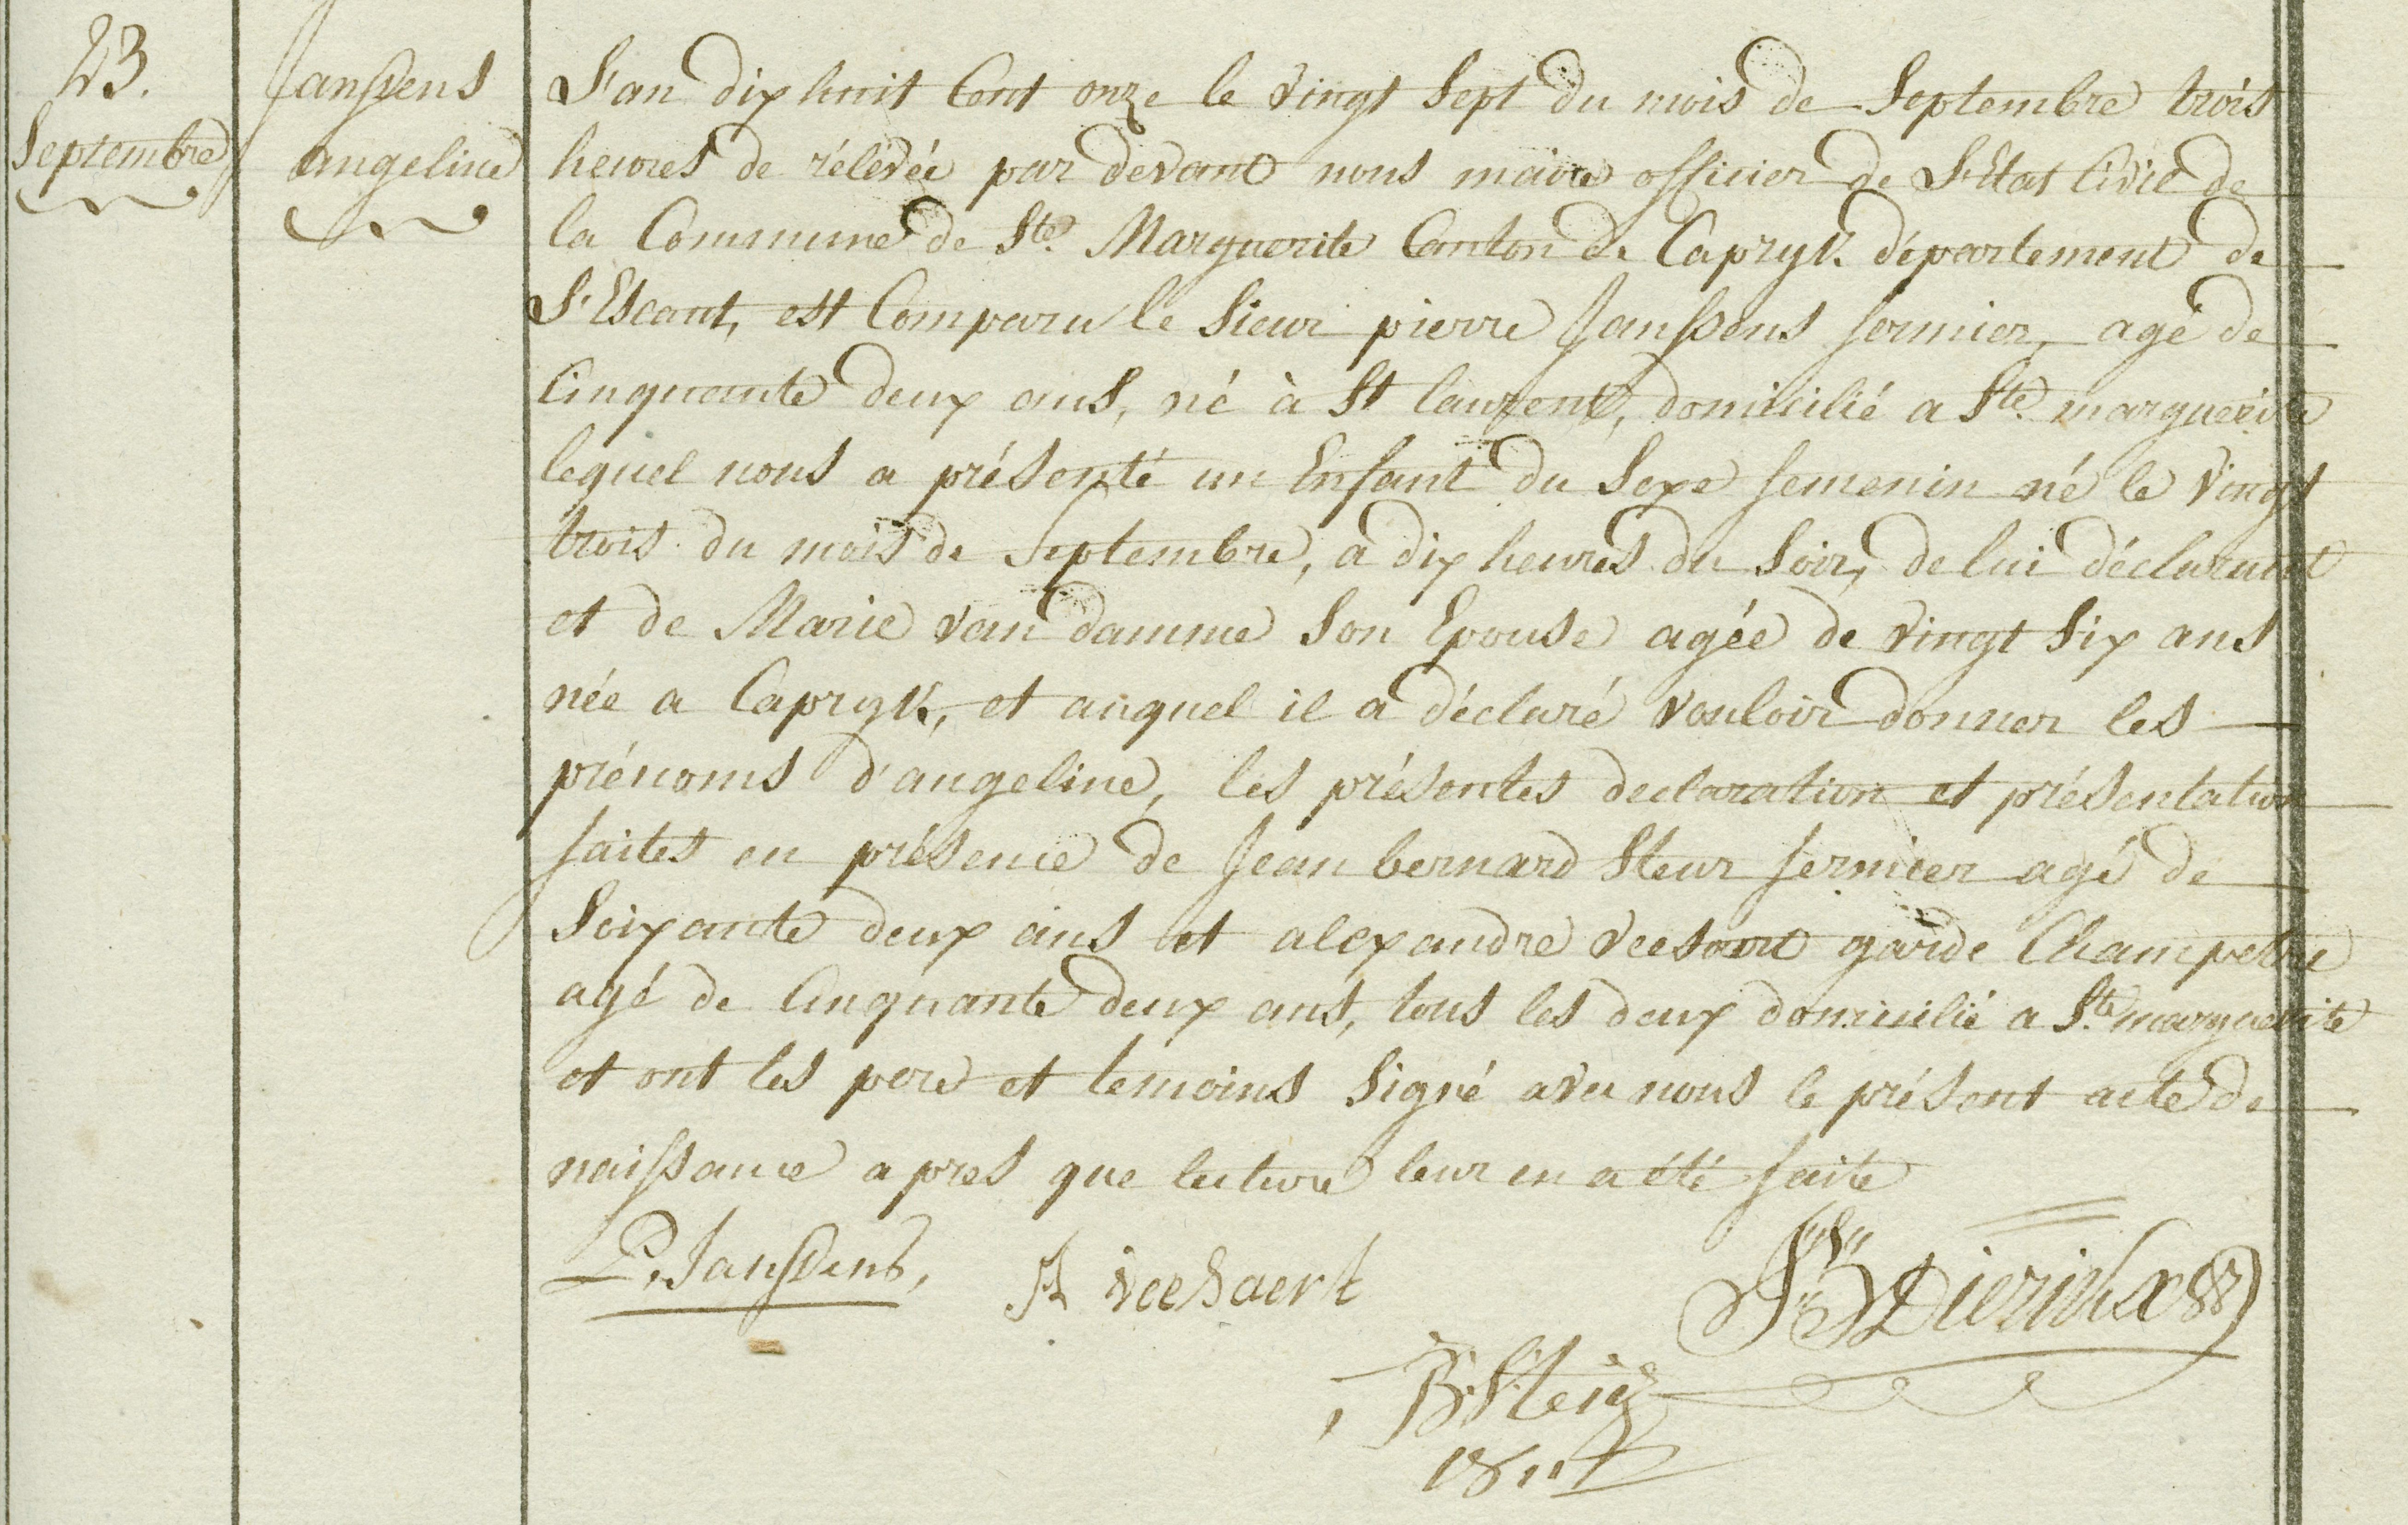 23.
Septembre
Janssens
angeline
L'an dix huit Cent onze le vingt Sept du mois de Septembre trois
heures de rélévée par devant nous maire officier de L'Etat Civil de
la Commune de Ste. Marguerite Canton de Capryk département de
L'Escaut, est Comparu le Sieur pierre Janssens fermier, agé de
Cinquante deux ans, né à St laurent, domicilié a Ste. marguerite
lequel nous a présenté un Enfant du Sexe femenin né le Vingt
trois du mois de Septembre, a dix heures du Soir, de lui déclarant
et de Marie van damme Son Epouse agée de vingt Six ans
née a Capryk, et auquel il a déclaré vouloir donner les
prénoms d'angeline, les présentes declaration et présentation
faites en présence de Jean bernard Steur fermier agé de
Soixante deux ans et alexandre veesaert garde Champetre
agé de Cinquante deux ans, tous les deux domicilié a Ste. marguerite
et ont les pere et temoins Signé avec nous le présent acte de
naissance apres que lecture leur en a été faite
P. Janssens,
A veesaert
Dierickx
B: Steur
1811